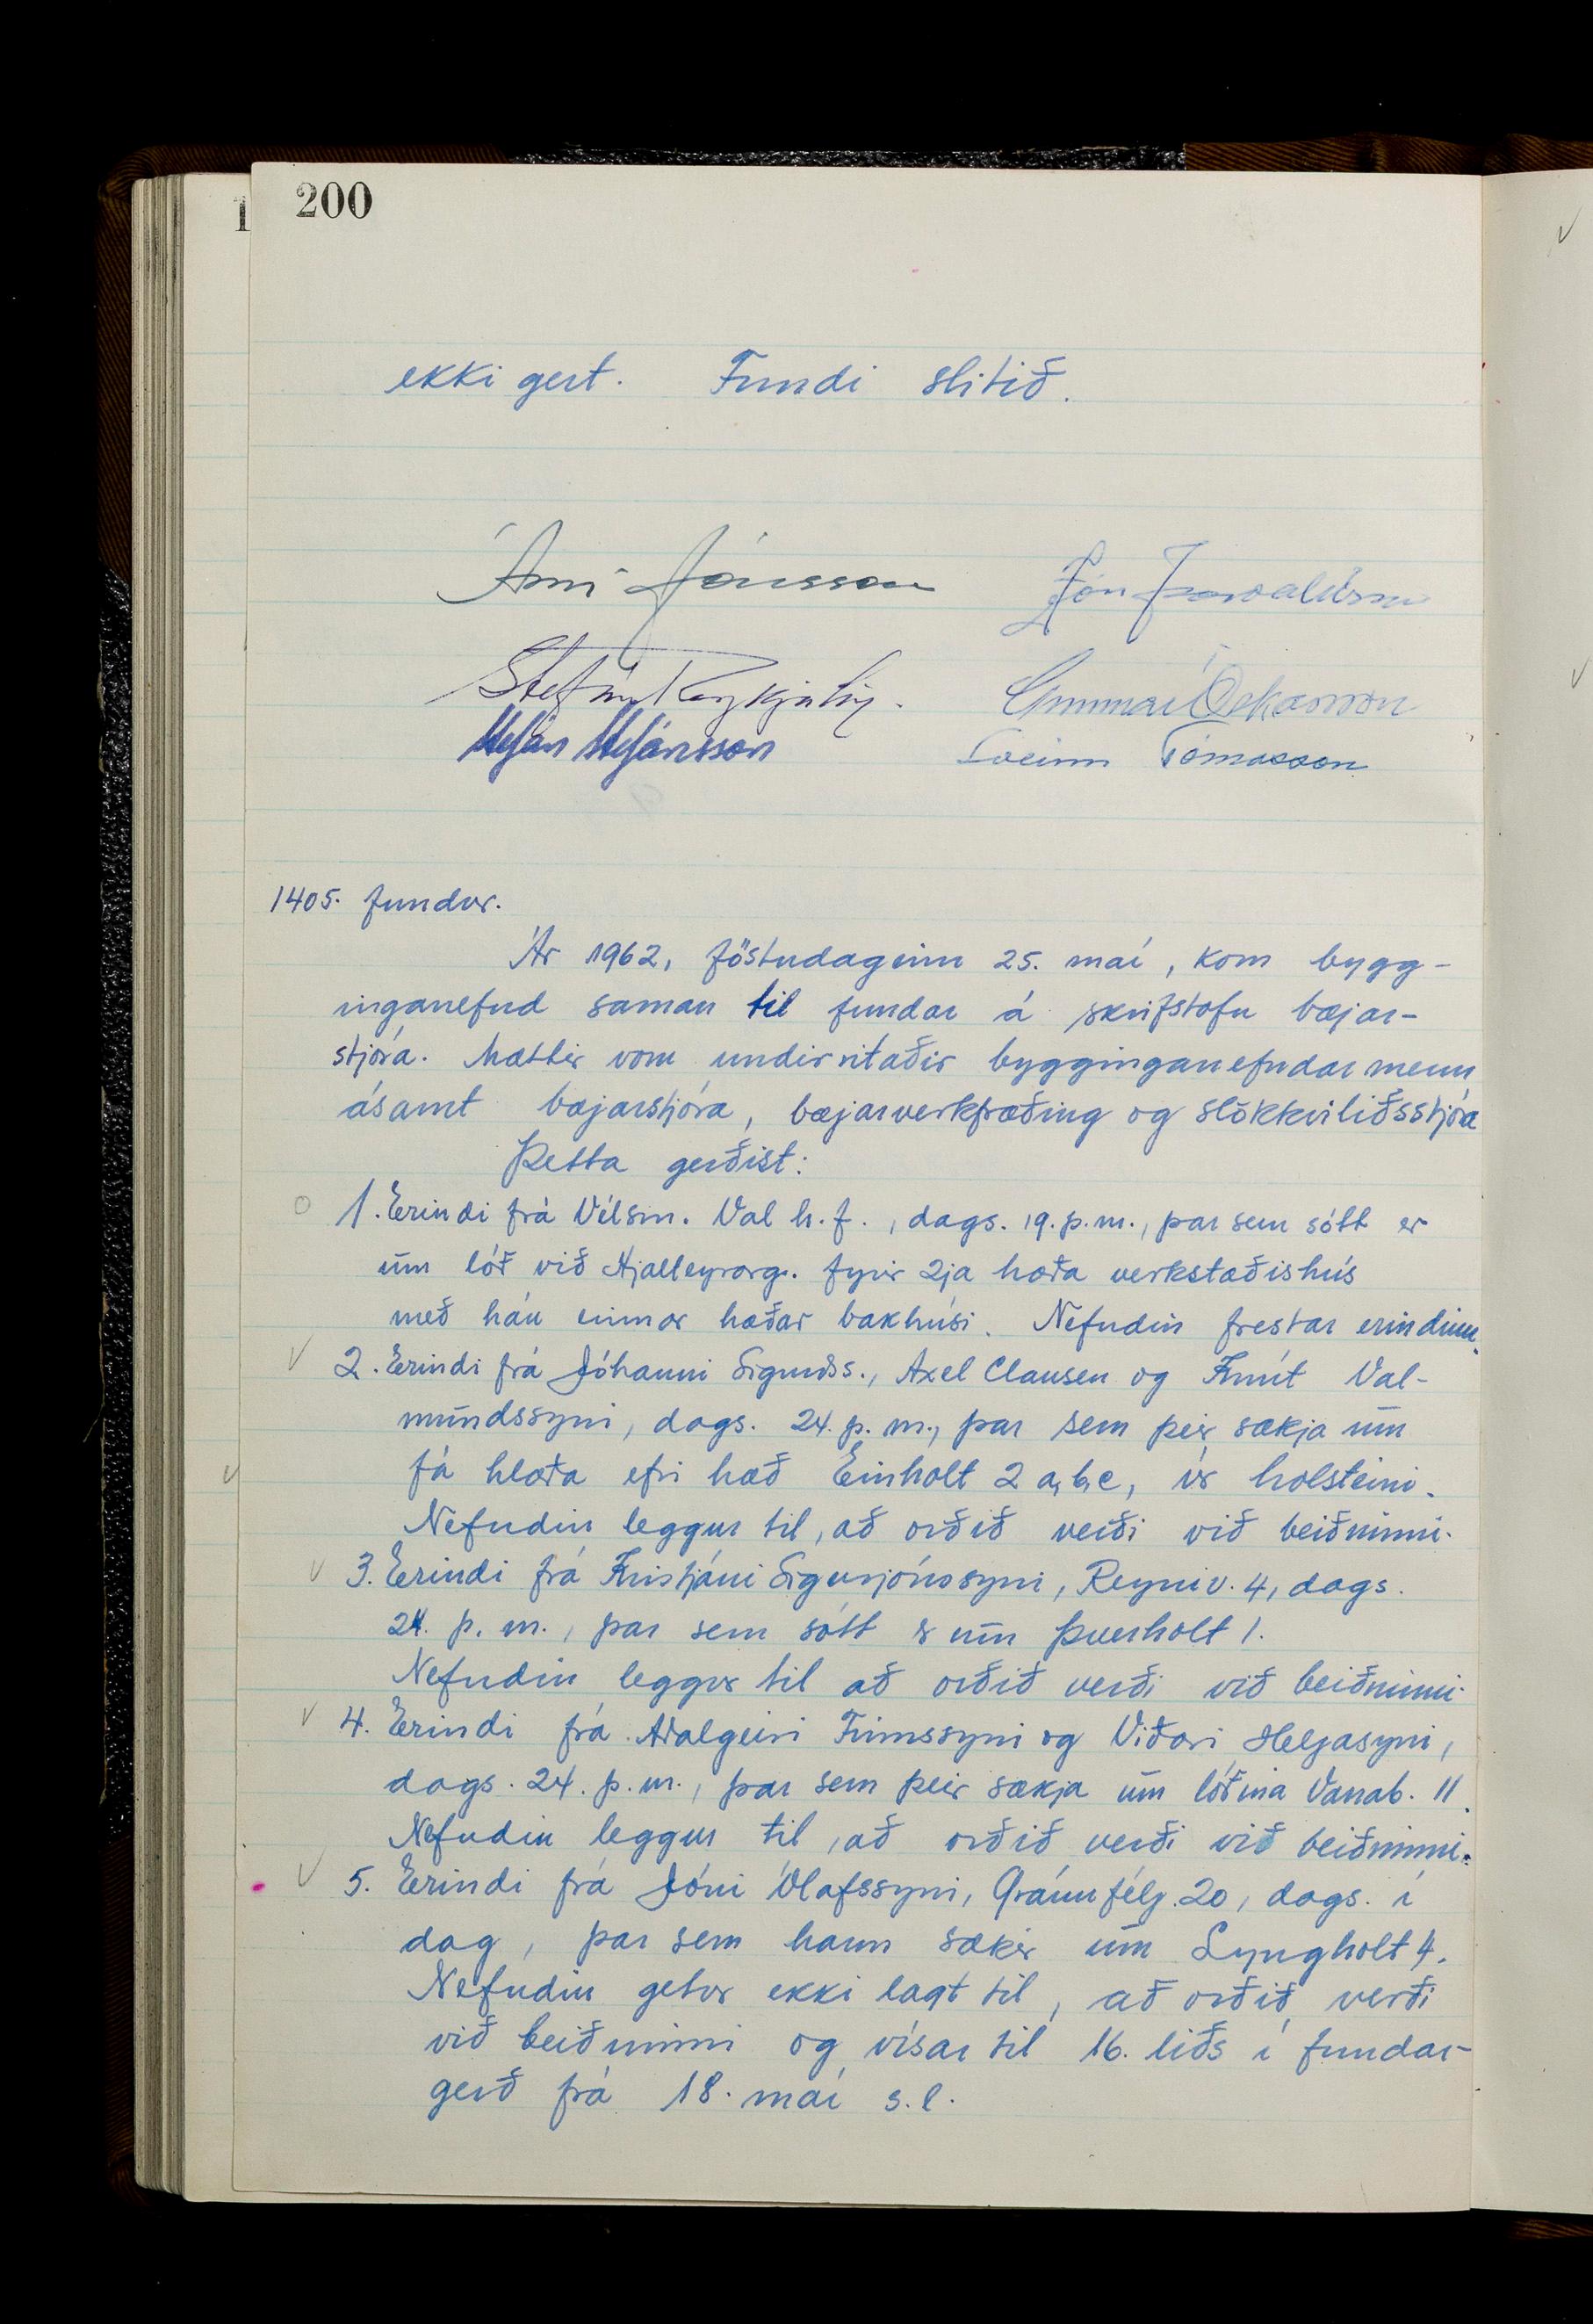 200
ekki gert. Fundi slitið.
Árni Jónsson Jón Þorvaldsson
Stefán Reykjalín. Gunnar Óskarsson
Stefán Stefánsson Sveinn Tómasson
1405. fundur.
Ár 1962, föstudaginn 25. maí, kom bygg-
inganefnd saman til fundar á skrifstofu bæjar-
stjóra. Mættir voru undirritaðir bygginganefndarmenn
ásamt bæjarstjóra, bæjarverkfræðing og slökkviliðsstjóra
Þetta gerðist:
1. Erindi frá Vélsm. Val h.f., dags. 19. þ.m., þar sem sótt er
um lóð við Hjalteyrarg. fyrir 2ja hæða verkstæðishús
með háu einnar hæðar bakhúsi. Nefndin frestar erindinu.
2. Erindi frá Jóhanni Sigurðss., Axel Clausen og Knút Val-
mundssyni, dags. 24. þ.m., þar sem þeir sækja um
fá hlaða efri hæð Einholt 2 a,b,c, úr holsteini.
Nefndin leggur til, að orðið verði við beiðninni.
3. Erindi frá Kristjáni Sigurjónssyni, Reyniv. 4, dags.
24. þ.m., þar sem sótt er um Þverholt 1.
Nefndin leggur til að orðið verði við beiðninni.
4. Erindi frá Aðalgeiri Finnssyni og Viðari Helgasyni,
dags. 24. þ.m., þar sem þeir sækja um lóðina Vanab. 11.
Nefndin leggur til, að orðið verði við beiðninni.
5. Erindi frá Jóni Ólafssyni, Gránufélg. 20, dags. í
dag, þar sem hann sækir um Lyngholt 4.
Nefndin getur ekki lagt til, að orðið verði
við beiðninni og vísar til 16. liðs í fundar-
gerð frá 18. maí s.l.